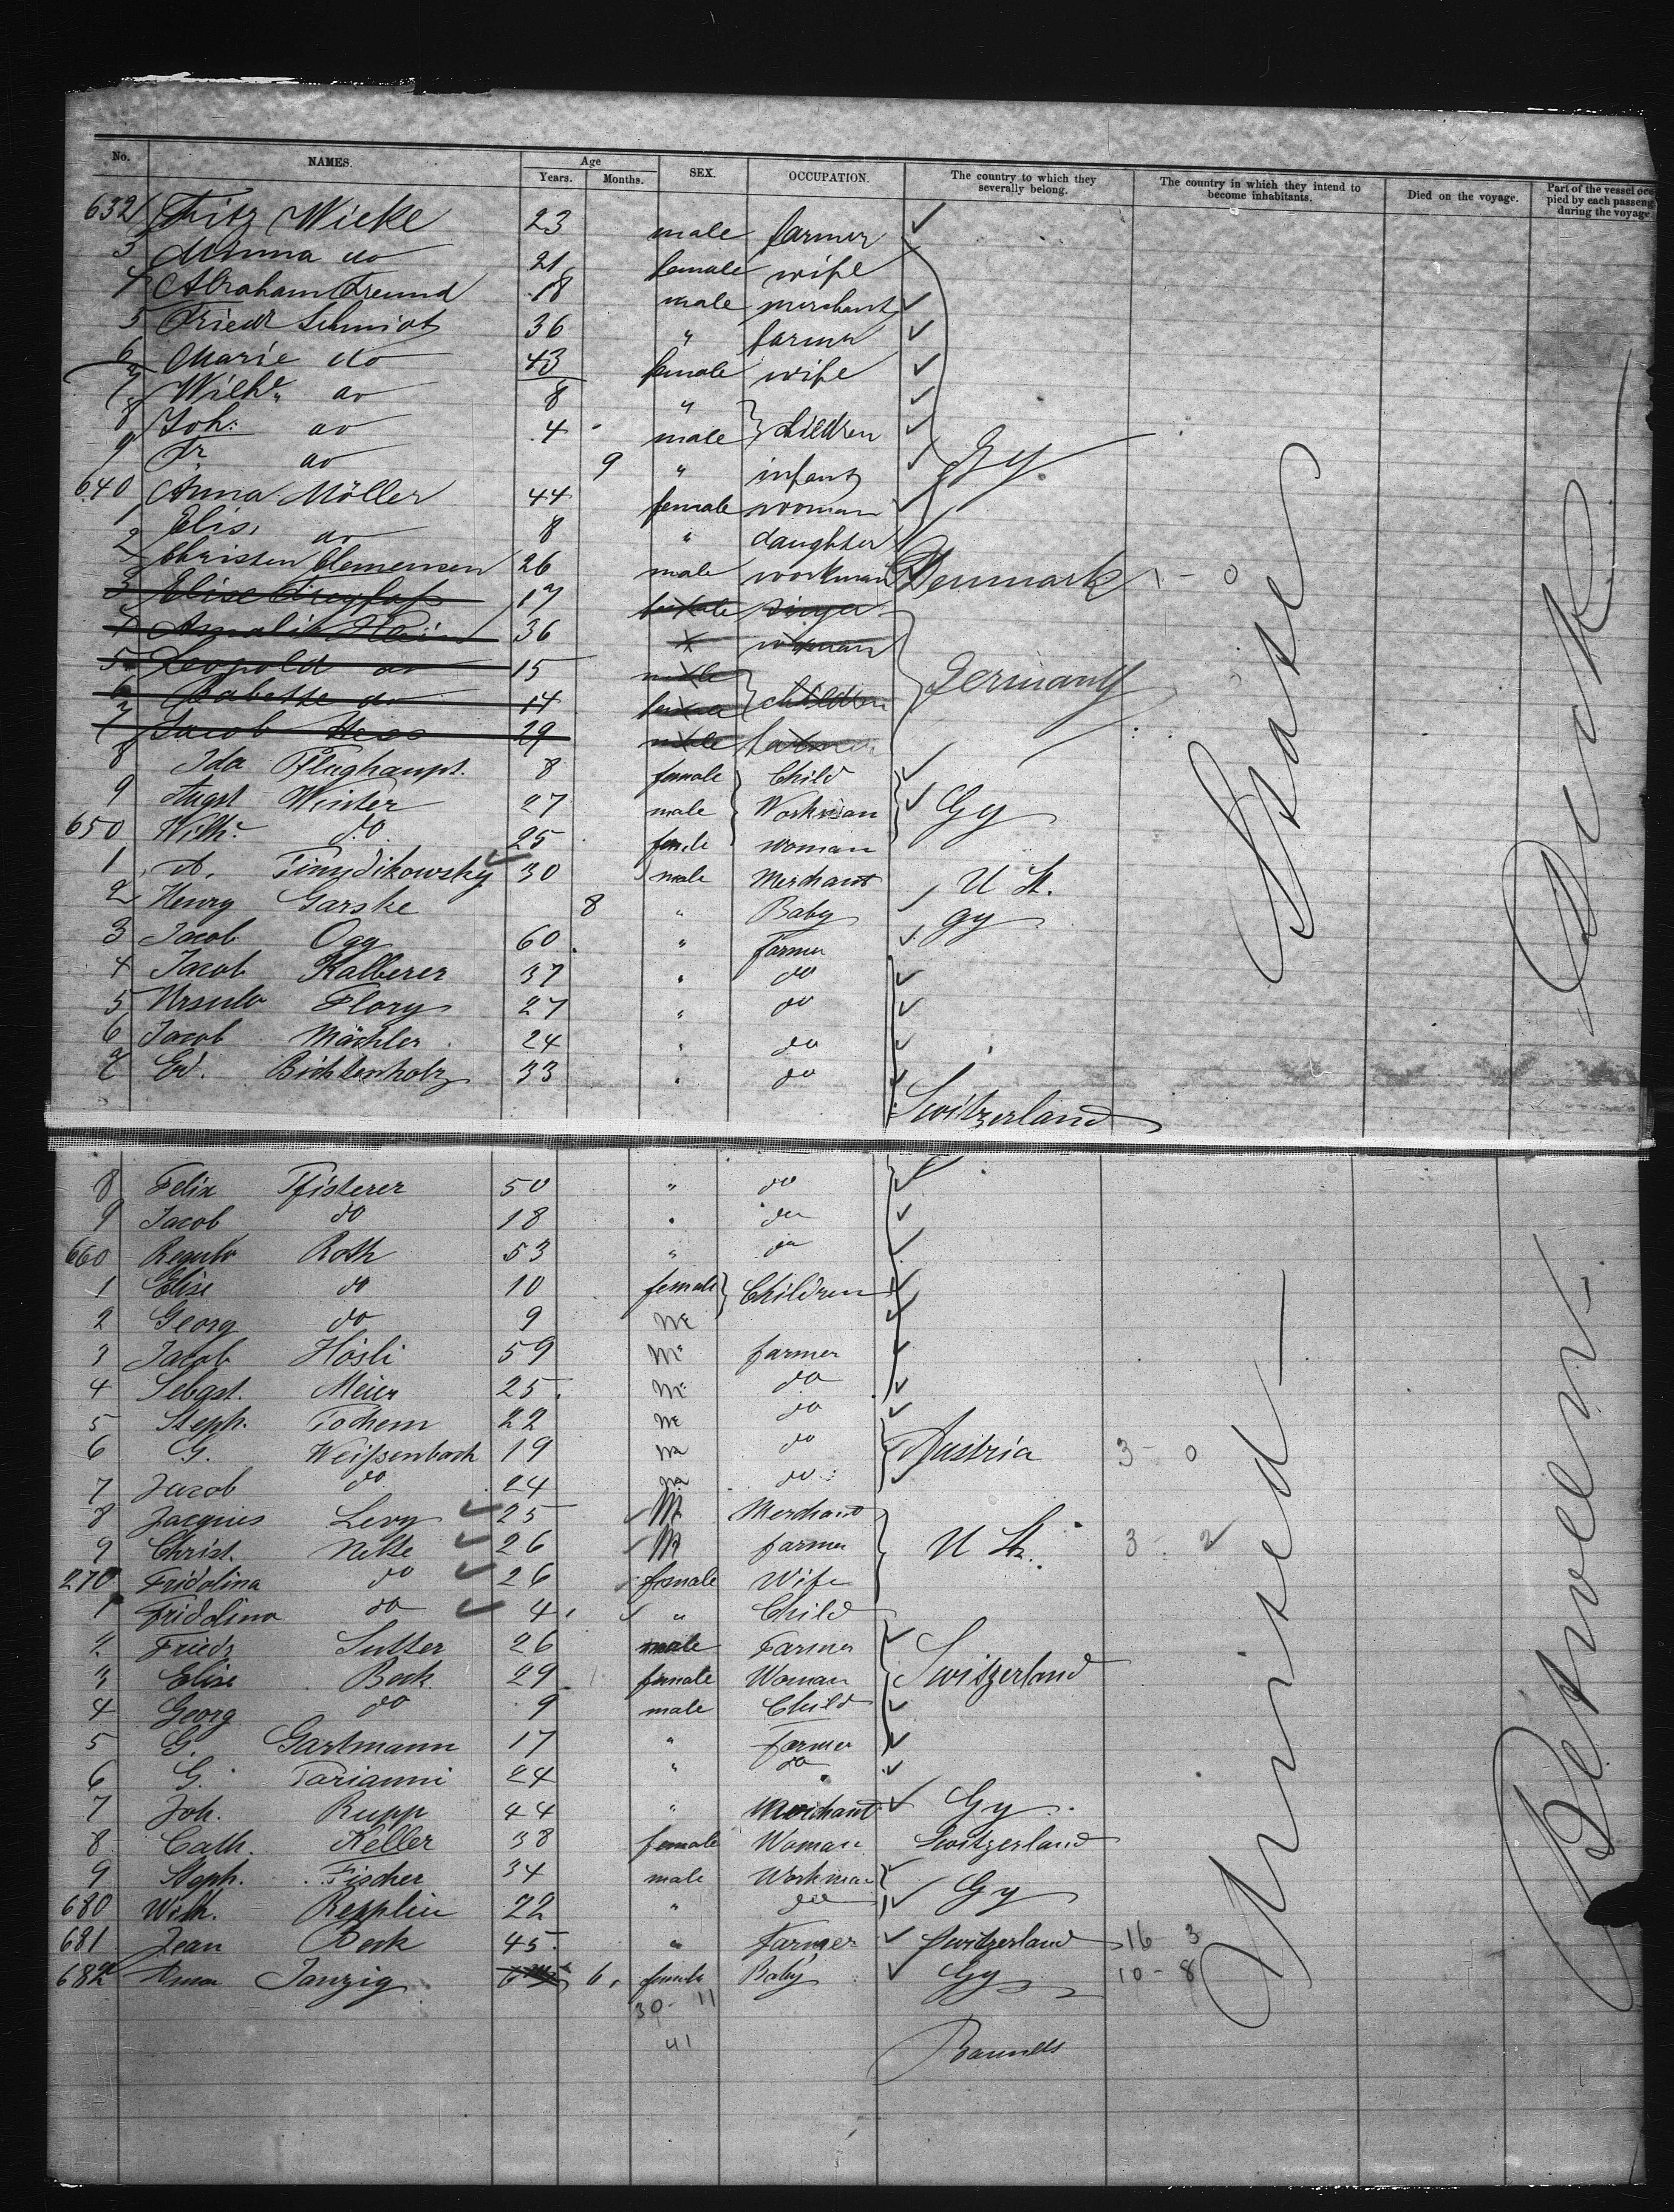 No. NAMES. Age Years. Months. SEX. OCCUPATION. The country to which they severally belong. The country in which they intend to become inhabitants. Died on the voyage. Part of the vessel occupied by each passeng during the voyage.
632 Fritz Wicke 23 male farmer
3 Minna do 21 female wife
4 Abraham Freund 18 male merchant
5 Friedr Schmidt 36 " farmer
6 Marie do 43 female wife
7 Wilh. do 8 "
8 Joh: do 4 male children
9 Fr. do 9 " infant Gy
640 Anna Möller 44 female woman
1 Elis. do 8 " daughter
2 Christen Clemensen 26 male workman Denmark 1 - 0
3 Elise 17 female
4 Amalie 36 " woman
5 Leopold do 15 male
6 Babette do 14 female children Germany
7 Jacob Hess 29 male farmer
8 Ida Pflughaupt. 8 female Child
9 Augst Winter 27 male Workman Gy
650 Wilh. do 25 female woman
1 A. 30 male Merchant U St.
2 Henry Garske 8 " Baby Gy
3 Jacob Ogg 60 " Farmer
4 Jacob Kalberer 37 " do
5 Ursula Flory 27 " do
6 Jacob Mächler 24 " do
7 Ed. Bichtenholz 33 " do
Switzerland
8 Felix Pfisterer 50 " do
9 Jacob do 18 " do
660 Regula Roth 53 " do
1 Elise do 10 female Children
2 Georg do 9 m
3 Jacob Hösli 59 m farmer
4 Sebast. Meier 25 m do
5 Steph. Tochem 22 m do
6 G. Weißenbach 19 m do Austria 3 - 0
7 Jacob do 24 m do
8 Jacques Levy 25 M Merchant
9 Christ. Nette 26 M farmer U St. 3 - 2
270 Fridolina do 26 female Wife
1 Fridolina do 4 " Child
2 Friedr Sutter 26 male Farmer
3 Elise Beck 29 female Woman Switzerland
4 Georg do 9 male Child
5 G. Gartmann 17 " farmer
6 G. Parianni 24 " do
7 Joh. Rupp 44 " Merchant Gy
8 Cath. Keller 38 female Woman Switzerland
9 Steph. Fischer 34 male Workman
680 Wilh. Repplin 22 " do Gy
681 Jean Beck 45 " Farmer Switzerland 16 - 3
682 Janzig 6 female Baby Gy 10 - 8
30 - 11
41
United States
Between Decks